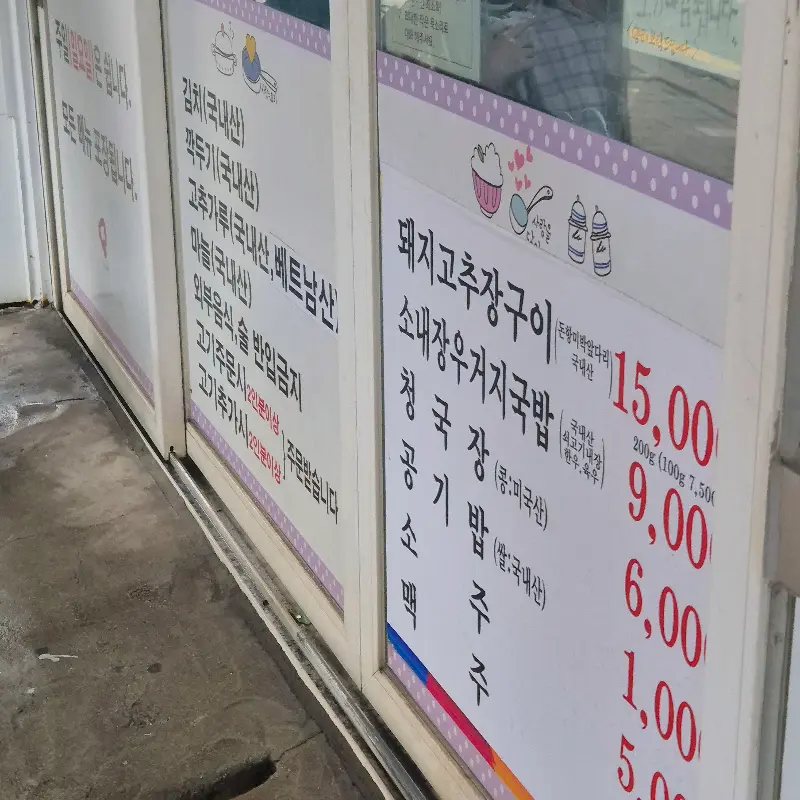 주일(일요일)은 쉽니다.
모든 메뉴 포장됩니다.
김치(국내산)
깍두기(국내산)
고추가루(국내산,베트남산)
마늘(국내산)
외부음식,술 반입금지
고기주문시 2인분이상
고기추가시 2인분이상
) 주문받습니다
사랑을
돼지고추장구이
(돈항미박앞다리
국내산)
15,00
200g (100g 7,500
소내장우거지국밥
(국내산
쇠고기내장
한우.육우)
9,00
청국장 (콩:미국산)
6,00
공기밥 (쌀:국내산)
1,00
소 주
5,00
맥 주